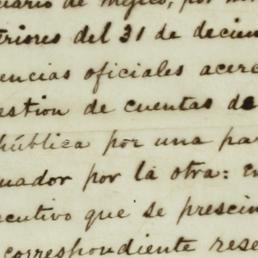 uario de Méjico, por m
triores del 31 de decien
encias oficiales acerc
estion de cuentas de
pública por una pa
uador por la otra: en
ecutivo que se prescin
correspondiente rese